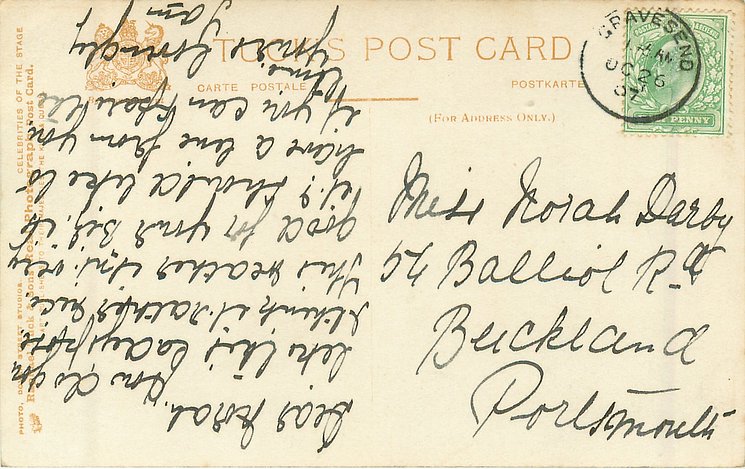 TUCK'S POST CARD
CARTE POSTALE
POSTKARTE
(FOR ADDRESS ONLY.)
GRAVESEND
OC 26
07
PENNY
Miss Norah Darby
54 Balliol Rd
Buckland
Portsmouth
Dear Norah, How do you
like this lady's
I think it rather nice
This weather isn't very
good for your is
it? I should like to
have a line from you
if you can spare the
time
Yours lovingly
PHOTO, DOVER STREET STUDIOS.
CELEBRITIES OF THE STAGE
Raphael Tuck & Sons' Real Photograph Post Card.